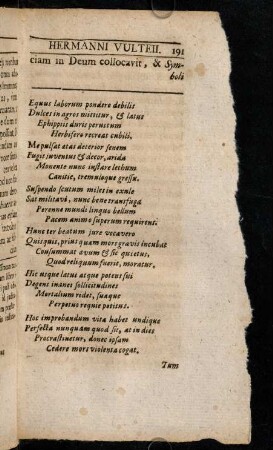 HERMANNI VULTEII. 191
ciam in Deum collocavit, & Sym-
boli
Equus laborum pondere debilis
Dulces in agros mittitur, & latus
Ephippiis duris perustum
Herbifero recreat cubili.
Me pulsat ætas deterior senem
Fugit juventus & decor, arida
Monente nunc instare lethum
Canitie, tremuloque gressu.
Suspendo scutum miles in exule
Sat militavi, nunc bene transfuga
Perenne mundi linquo bellum
Pacem animo superum requirenti
Hunc ter beatum jure vocavero
Quisquis, prius quam mors gravis incubat
Consummat ævum & sic quietus,
Quod reliquum fuerit, moratur.
Hic usque lætus atque potens sui
Degens inanes sollicitudines
Mortalium ridet, suaque
Perpetuo requie potitus.
Hoc improbandum vita habet undique
Perfecta nunquam quod sit, at in dies
Procrastinetur, donec
Cedere mors violenta cogat.
Tum